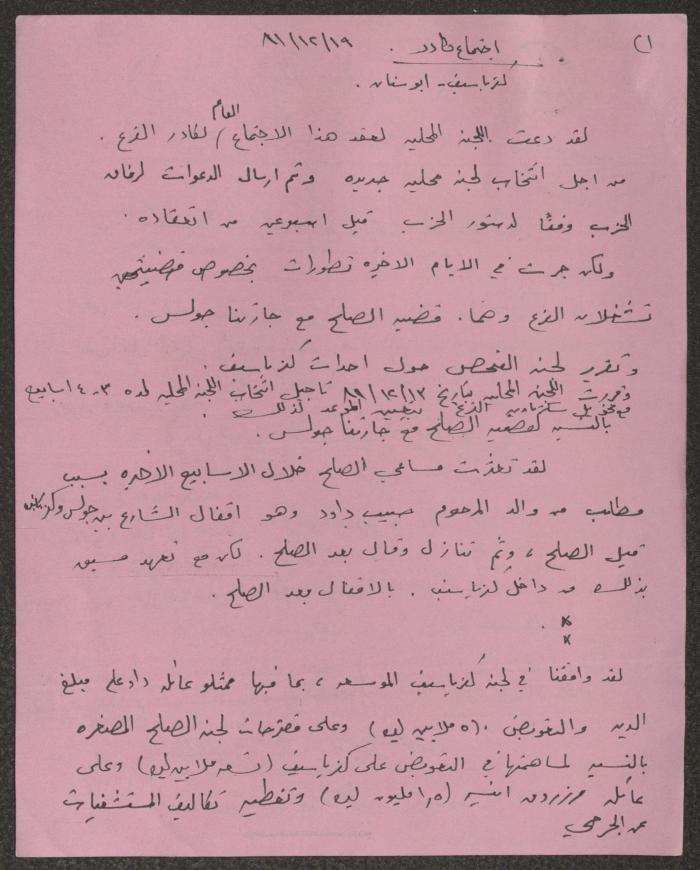 (١
اجتماع كادر . ٨١/١٢/١٩
كفرياسيف - ابوسنان .
العام
لقد دعت اللجنة المحليه لعقد هذا الاجتماع / لكادر الفرع .
من اجل انتخاب لجنة محليه جديده وتم ارسال الدعوات لرفاق
الحزب وفقًا لدستور الحزب قبل اسبوعين من انعقاده .
ولكن جرت في الايام الاخيره تطورات بخصوص قضيتين
تشغلان الفرع وهما . قضيه الصلح مع جارتنا جولس .
وتقرير لجنة الفحص حول احداث كفرياسيف .
وقررت اللجنة المحليه بتاريخ ٨١/١٢/١٣ تاجيل انتخاب اللجنة المحليه لمده ٣-٤ اسابيع
الفرع بتعيين الموعد لذلك .
بالنسبه لقضيه الصلح مع جارتنا جولس .
لقد تعذرت مساعي الصلح خلال الاسابيع الاخيره بسبب
مطلب من والد المرحوم حبيب داود وهو اقفال الشارع بين جولس وكفرياسيف
قبل الصلح ، وتم تنازل وقال بعد الصلح . لكن مع تعهد مسبق
بذلك من داخل كفرياسيف . بالاقفال بعد الصلح .
x .
x
لقد وافقنا في لجنة كفرياسيف الموسعه ، بما فيها ممثلو عائله داد على مبلغ
الديه والتعويض . (٥ ملايين ليره) وعلى مقترحات لجنة الصلح المصغره
بالنسبه لمساهمتها في التعويض على كفرياسيف (تسعه ملايين ليره) وعلى
عائله (١,٥ مليون ليره) وتغطيه تكاليف المستشفيات
عن الجرحى